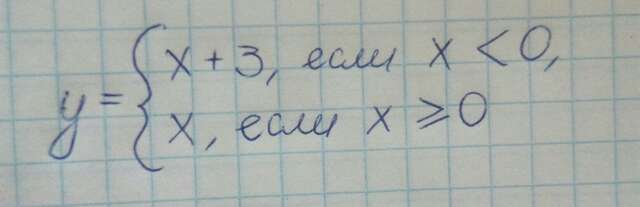 y = { x + 3, если x < 0,
x, если x ⩾ 0